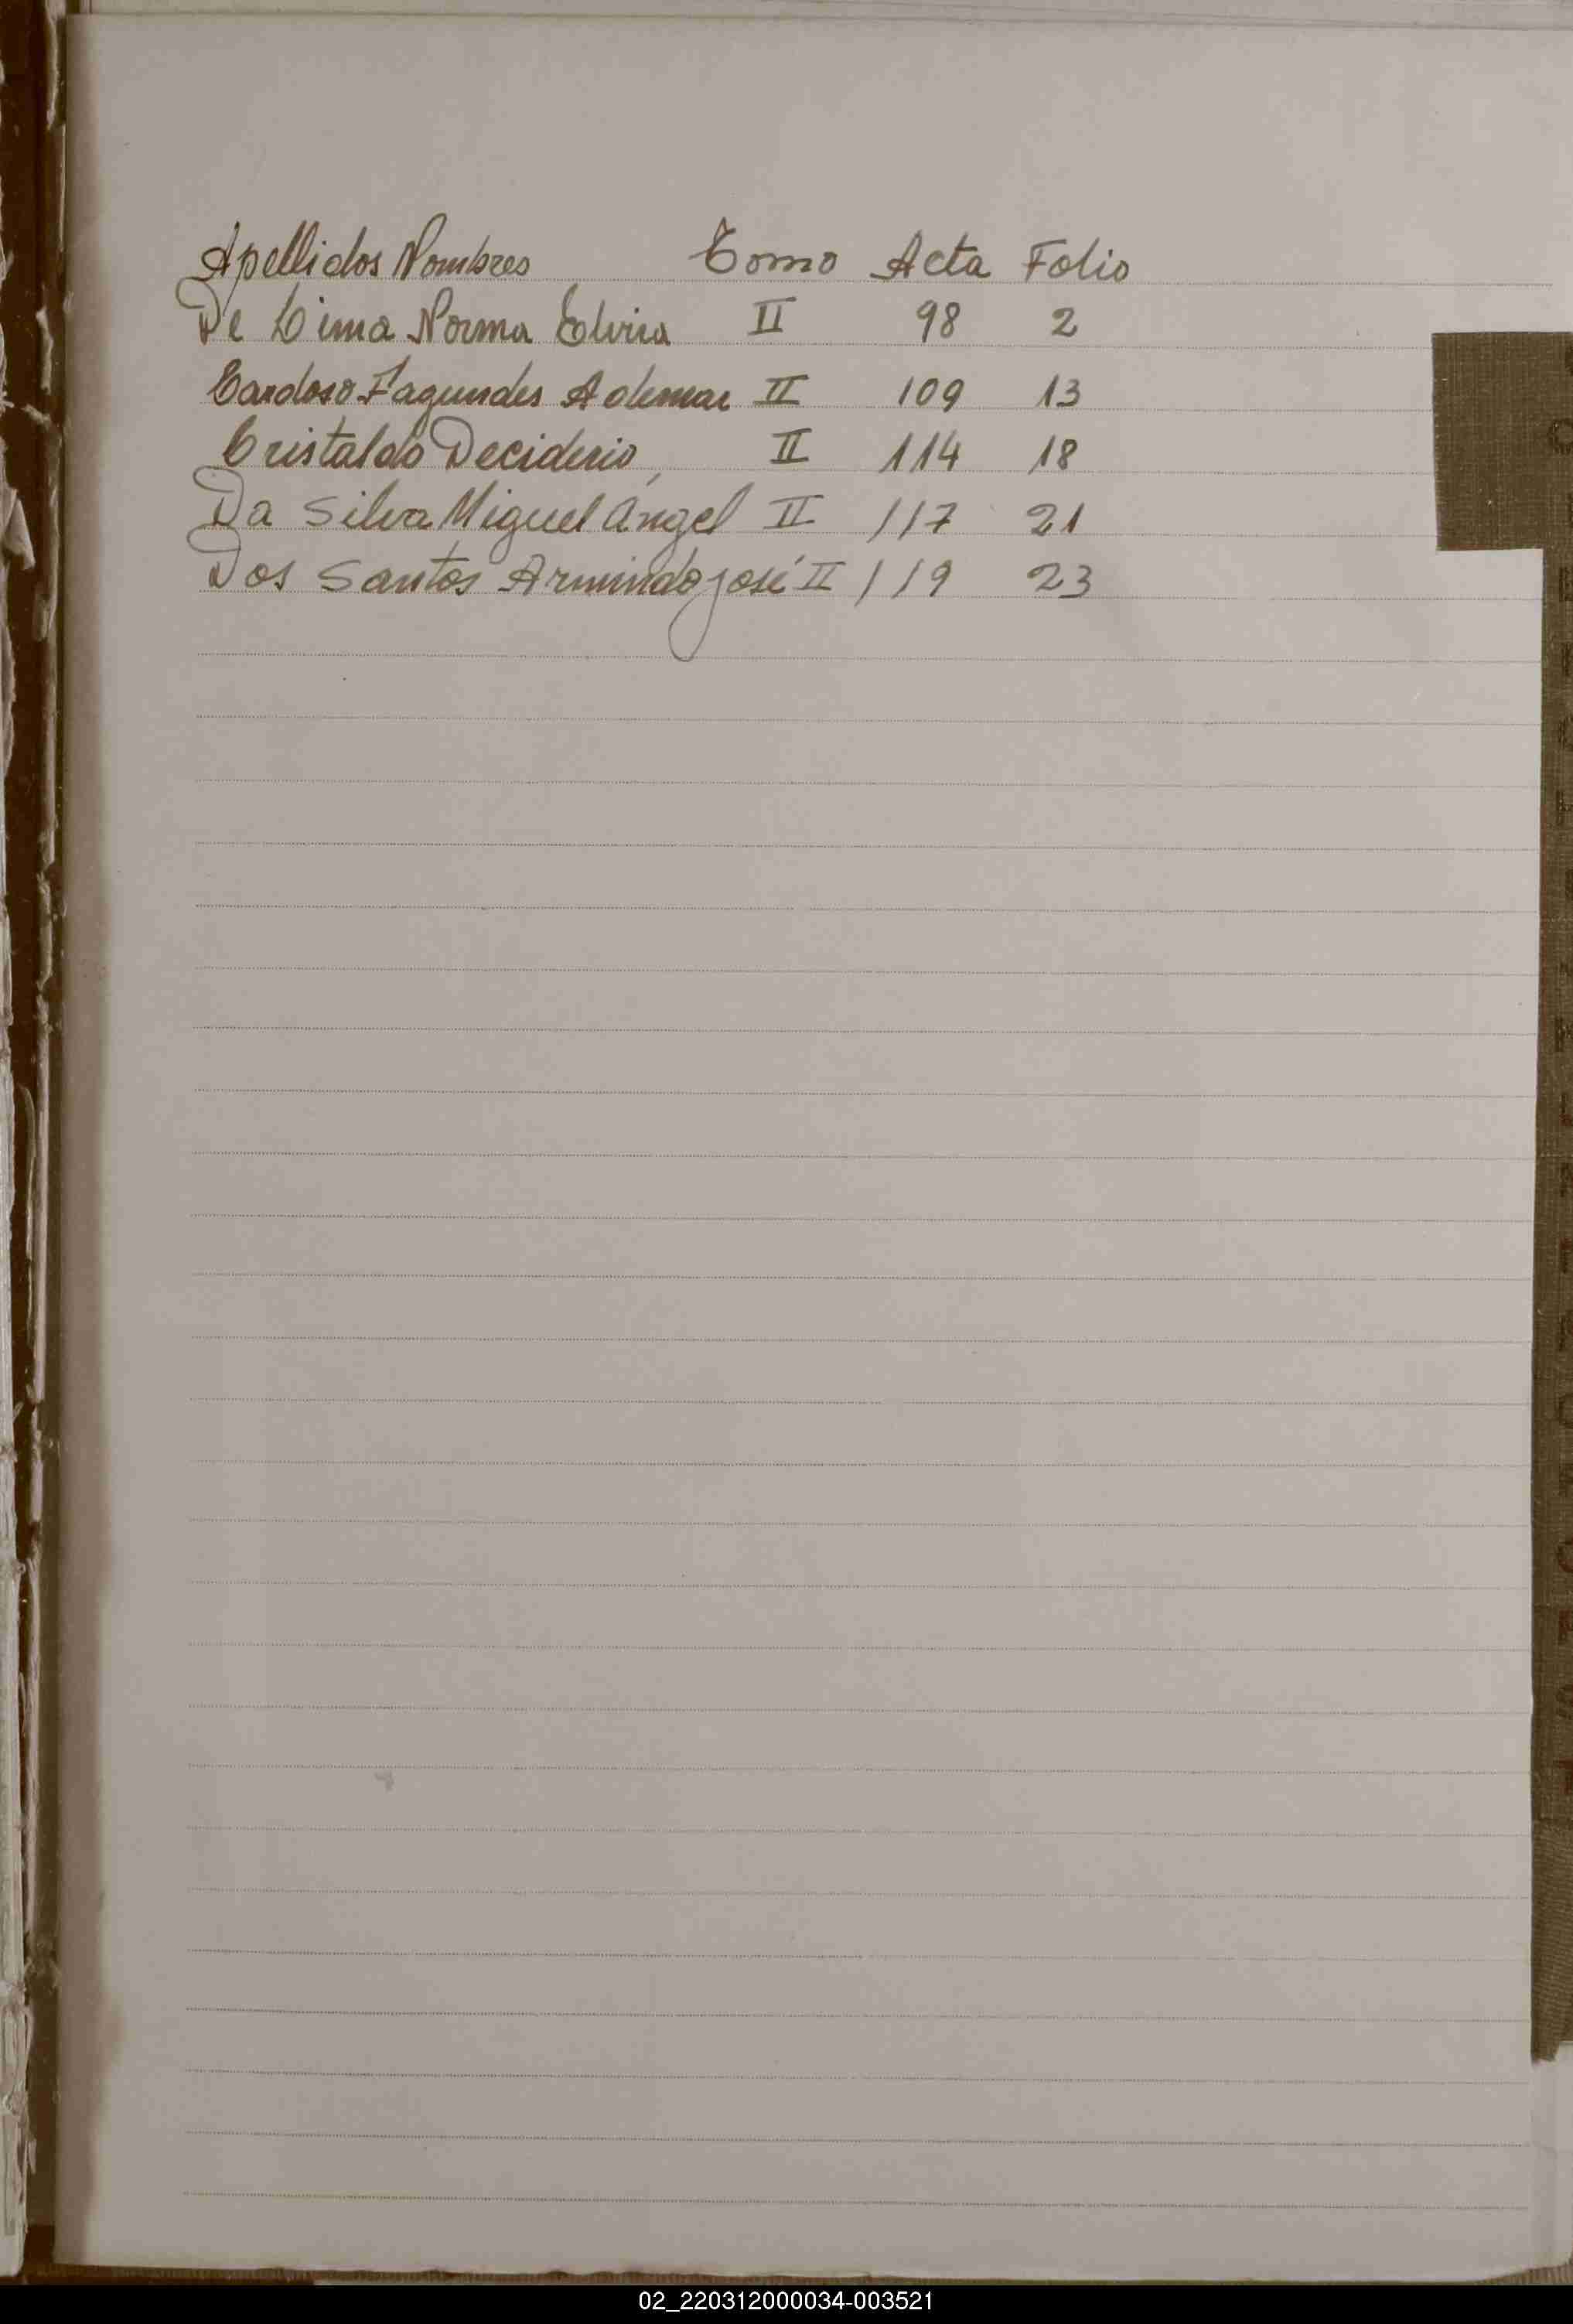 Apellidos Nombres Tomo Acta Folio
De Lima Norma Elvira II 98 2
Cardoso Fagundes Ademar II 109 13
Cristaldo Deciderio II 114 18
Da Silva Miguel Ángel II 117 21
Dos Santos Armindo José II 119 23
02_220312000034-003521